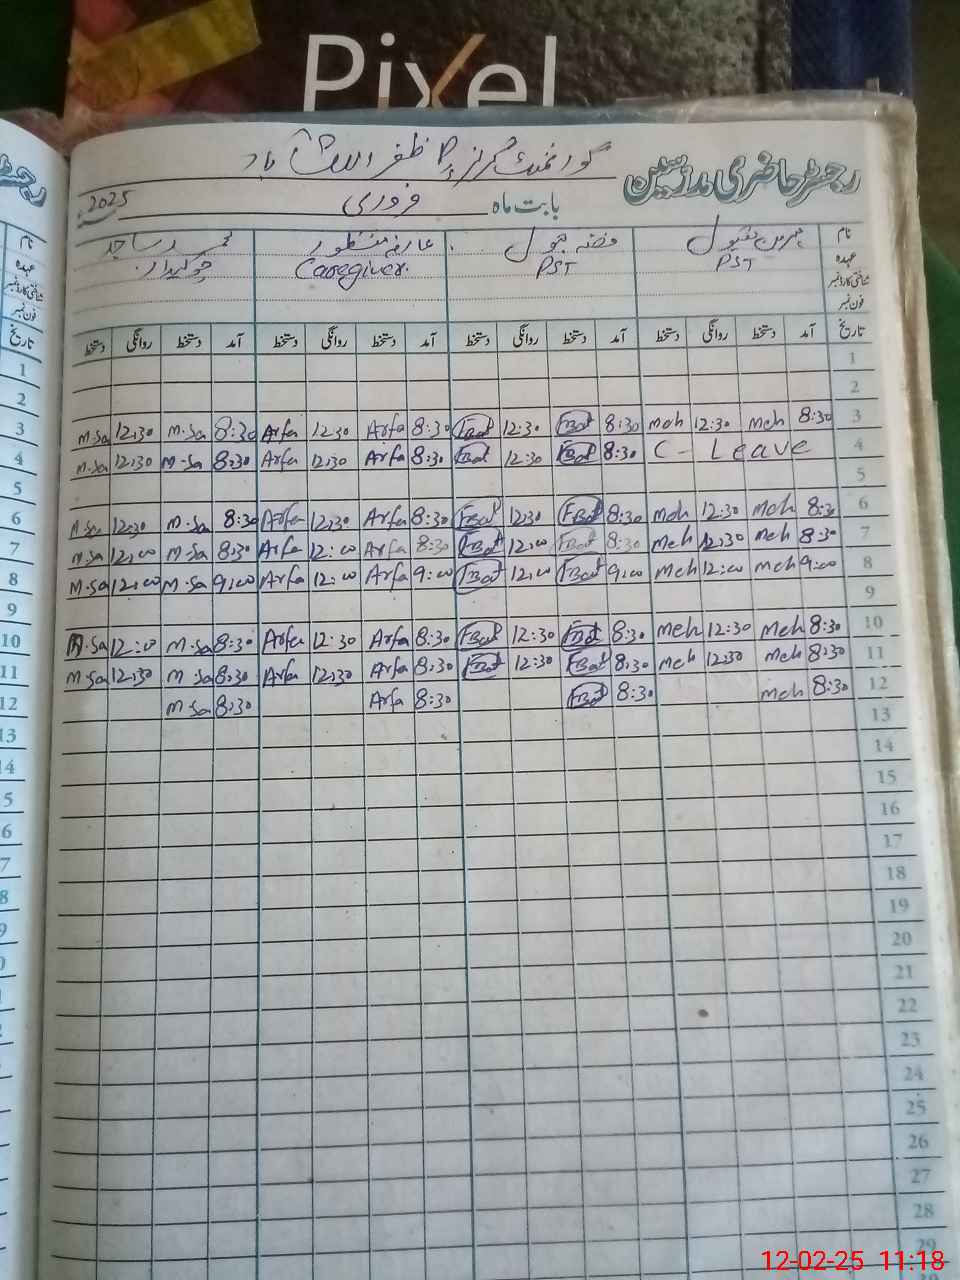 Pixel
رجسٹر حاضری مدرسین
گورنمنٹ
بابت ماہ فروری 2025
نام
عہدہ PST PST Caregiver. چوکیدار
شناختی کارڈ نمبر
فون نمبر
تاریخ آمد دستخط روانگی دستخط آمد دستخط روانگی دستخط آمد دستخط روانگی دستخط آمد دستخط روانگی دستخط
1
2
3 8:30 meh 12:30 meh 8:30 FBat 12:30 FBat 8:30 Arfa 12:30 Arfa 8:30 M.Sa 12:30 M.Sa
4 C - Leave 8:30 FBat 12:30 FBat 8:30 Arfa 12:30 Arfa 8:30 M.Sa 12:30 M.Sa
5
6 8:30 meh 12:30 meh 8:30 FBat 12:30 FBat 8:30 Arfa 12:30 Arfa 8:30 M.Sa 12:30 M.Sa
7 8:30 meh 12:30 meh 8:30 FBat 12:00 FBat 8:30 Arfa 12:00 Arfa 8:30 M.Sa 12:00 M.Sa
8 9:00 meh 12:00 meh 9:00 FBat 12:00 FBat 9:00 Arfa 12:00 Arfa 9:00 M.Sa 12:00 M.Sa
9
10 8:30 meh 12:30 meh 8:30 FBat 12:30 FBat 8:30 Arfa 12:30 Arfa 8:30 M.Sa 12:00 M.Sa
11 8:30 meh 12:30 meh 8:30 FBat 12:30 FBat 8:30 Arfa 12:30 Arfa 8:30 M.Sa 12:30 M.Sa
12 8:30 meh 8:30 FBat 8:30 Arfa 8:30 M.Sa
13
14
15
16
17
18
19
20
21
22
23
24
25
26
27
28
29
12-02-25 11:18